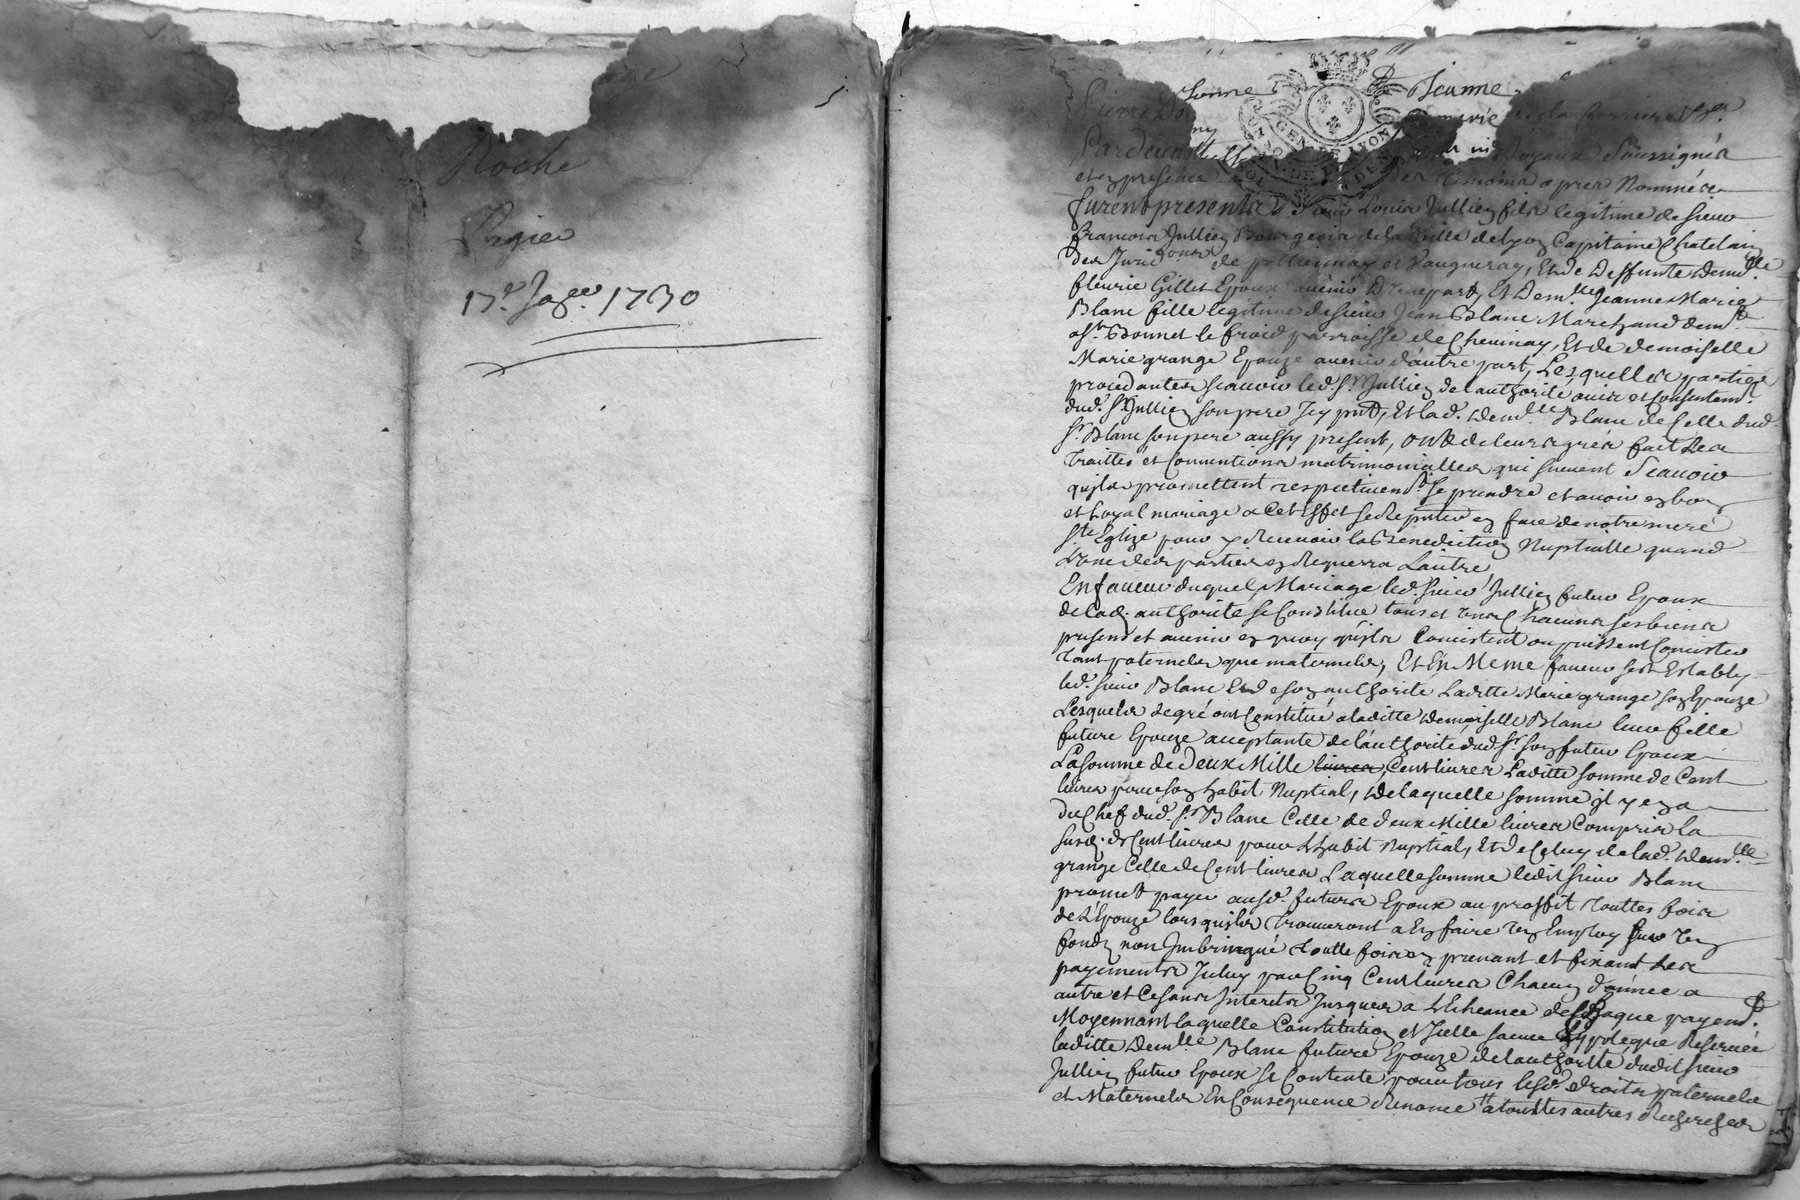 Roche
Papier
17e. Jage. 1730
Jeanne
Pardevant Soussignés
et en presence des temoins apres Nommés
furent presents Sieur Louis Jullien fils legitime de sieur
francois Jullien Bourgeois de la Ville de Lyon Capitaine Chatelain
des Juridons. de pollionnay et Vaugneray, Et de Deffunte demlle
fleurie Gillet Epoux avenir D'une part, Et Demlle. Jeanne Marie
Blanc fille legitime de sieur Jean Blanc Marchand demt.
a St. Bonnet le froid parroisse de Chevinay, Et de demoiselle
Marie grange Epouze avenir d'autre part, Lesquelles parties
procedantes scavoir led. Sr. Jullien de l'authorité avis et Consentemt.
dud. Sr. Jullien son pere Icy pnt, Et lad. demlle Blanc de Celle dud.
Sr. Blanc son pere aussy present, ont de leurs grés fait Les
traittés et Conventions matrimonialles qui suivent Scavoir
qu'ils promettent respectivemt. se prendre et avoir en bon
et Loyal mariage a Cet Effet se Representer en face de notre mere
Ste. Eglize pour y Recevoir la Benediction Nuptialle quand
L'une des parties en Requerra L'autre
En faveur duquel Mariage led. sieur Jullien futur Epoux
de lad. authorité se Constitue tous et Uns Chacuns ses biens
presens et avenir en quoy qu'ils Concistent ou puissent Concister
tant paternels que maternels, Et En Meme faveur sest Estably
led. sieur Blanc Et de son authorité Laditte Marie grange son Epouze
Lesquels de gré ont Constitué a laditte demoiselle Blanc leur fille
future Epouze acceptante de l'authorité dud. Sr. son futur Epoux
La somme de Deux Mille livres, Cent livres Laditte somme de Cent
livres pour son habit Nuptial, de laquelle somme jl y en a
du Chef dud. Sr. Blanc Celle de deux Mille livres Compris la
susd. de Cent livres pour L'habit Nuptial, Et de Celuy de lad. demlle
grange Celle de Cent livres Laquelle somme ledit sieur Blanc
promet payer ausd. futurs Epoux au proffit touttes fois
de L'Epouze lorsquils trouveront a En faire Un Employ sur Un
fond non Imbringué toutte fois en prenant et fixant Les
payements Iceluy par Cinq Cent livres Chacun d'année a
autre et Ce sans Interets Jusques a L'Echeance de Chaque payemt.
Moyennant laquelle Constitution et Icelle sauve hypoteque Reservée
laditte demlle Blanc future Epouze de l'authorité dudit sieur
Jullien futur Epoux se Contente pour tous lesd. droits paternels
et Maternels En Consequence Renonce a touttes autres Recherches